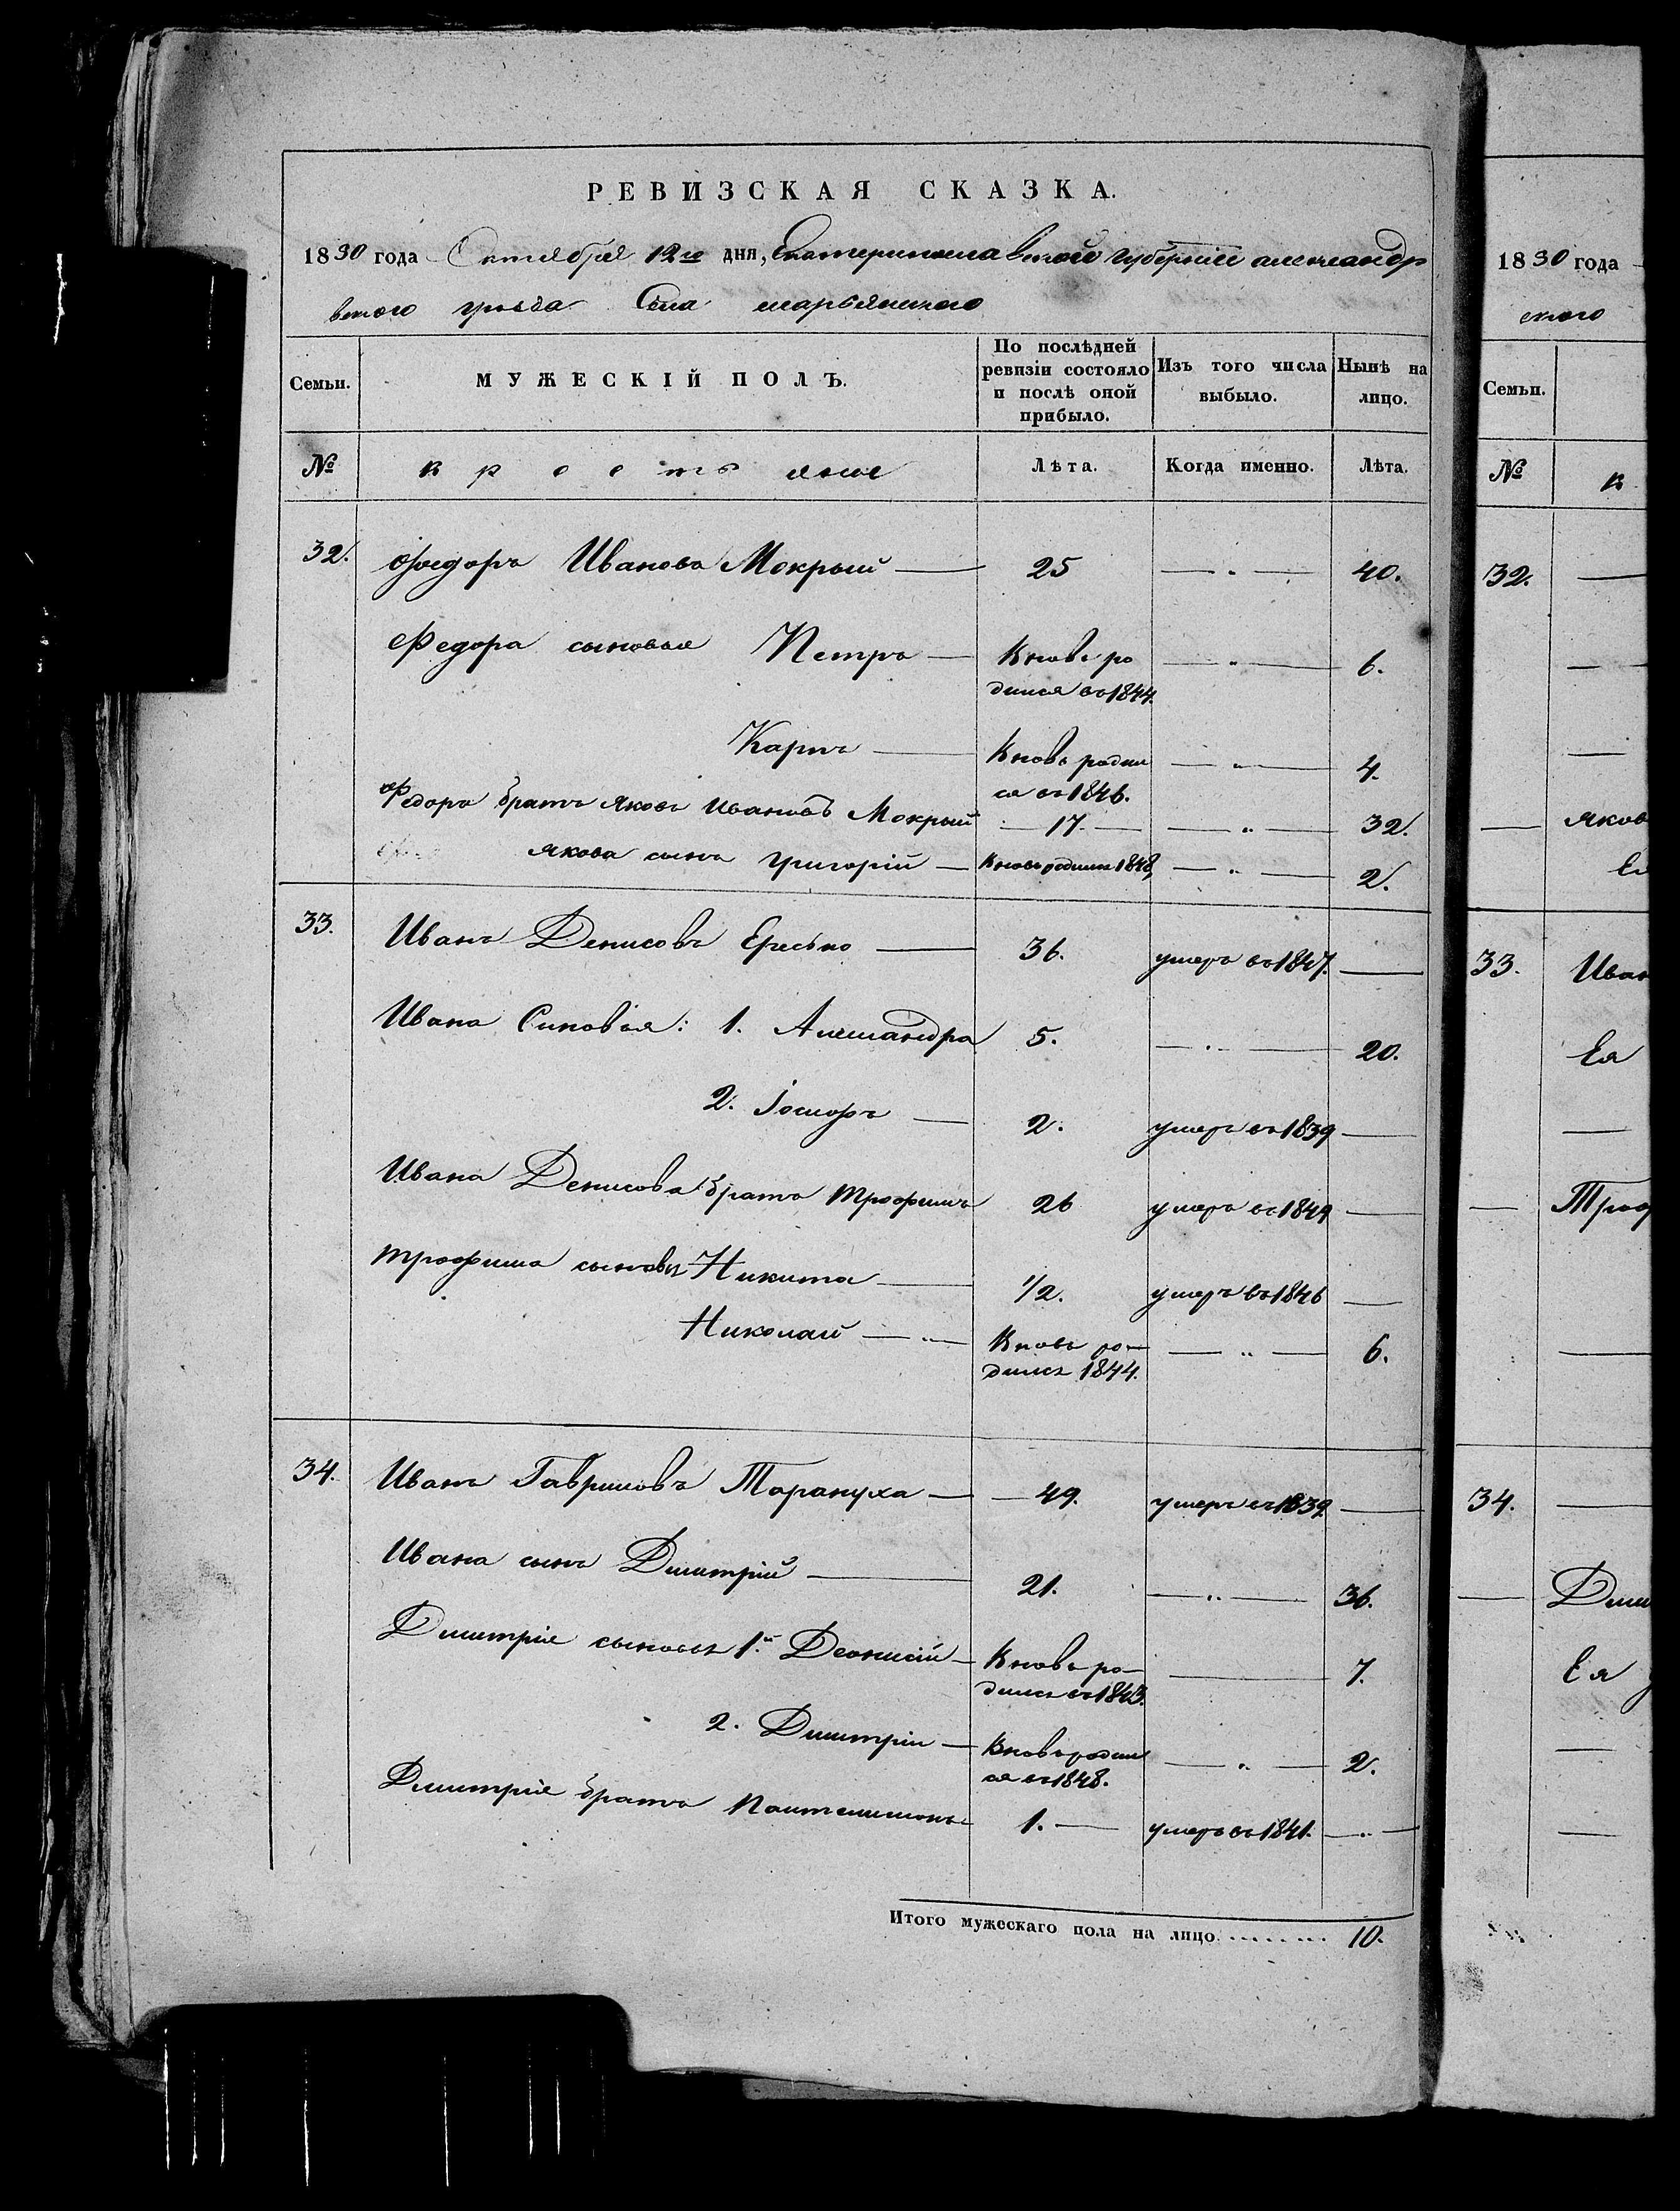 РЕВИЗСКАЯ СКАЗКА.
1830 года Октября 12го дня, Екатеринославской губернии александр
вского уезда Села марьянского
Семьи. МУЖЕСКІЙ ПОЛЪ. По послѣдней ревизіи состояло и послѣ оной прибыло. Изъ того числа выбыло. Нынѣ на лицо.
№ крестьяне Лѣта. Когда именно. Лѣта.
32. Федоръ Ивановъ Мокрый — 25 — " — 40.
Федора сыновья Петръ — Вновь ро — " — 6.
дился въ 1844.
Карпъ — Вновь родил — " — 4.
ся въ 1846.
Федора братъ Яковъ Ивановъ Мокрый — 17. — — " — 32.
Якова сынъ Григорій — Вновь родился 1848, — " — 2.
33. Иванъ Денисовъ Ересько — 36. умеръ въ 1847. —
Ивана Синовья: 1. Александра 5. — " — 20.
2. Іосифъ — 2. умеръ въ 1839 —
Ивана Денисова братъ Трофимъ 26 умеръ въ 1849 —
Трофима сыновья Никита — 1/2. умеръ въ 1846 —
Николай — " — Вновь ро- — " — 6.
дился 1844.
34. Иванъ Гавриловъ Тарануха — — 49. умеръ въ 1839. —
Ивана сынъ Дмитрій — 21. — " — 36.
Дмитрія сыновья 1.й Деонисій — Вновь ро- — 7.
дился въ 1843.
2. Дмитрій — Вновь родил — " — 2.
ся въ 1848.
Дмитрія братъ Пантелимонъ 1. — умеръ въ 1841. — " —
Итого мужескаго пола на лицо........ 10.
1830 года
ского
Семьи.
№ к
32. —
—
—
— Яков
Ег
33. Иван
Ея
—
— Троф
—
34. —
— Дми
Ея
—
—